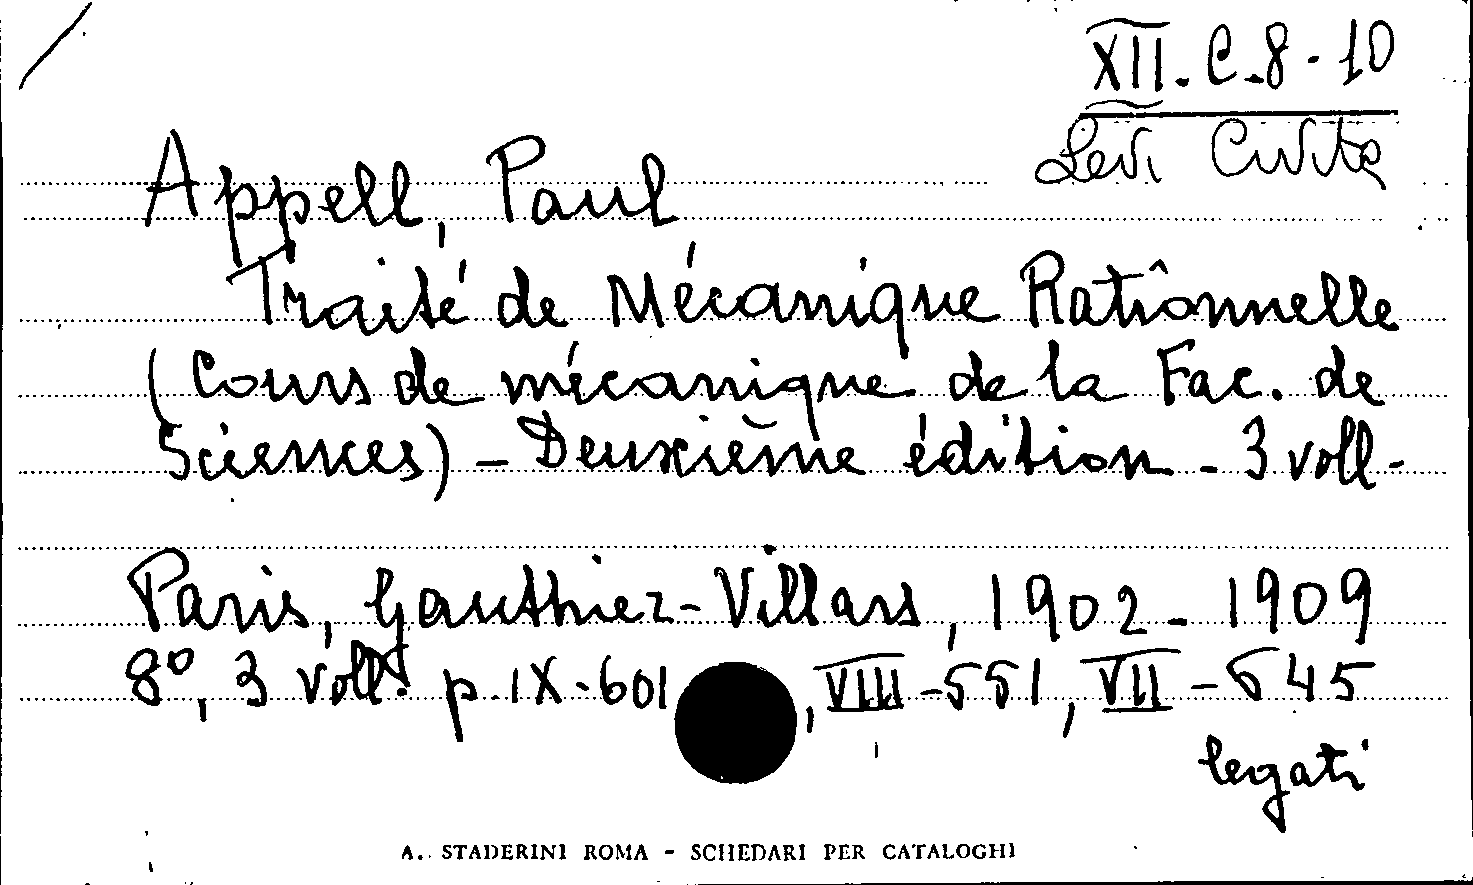 XII. C. 8 - 10
Levi Civita
Appell, Paul
Traité de Mécanique Rationnelle
(Cours de mécanique de la Fac. de
Sciences) - Deuxième édition - 3 voll -
Paris, Gauthier-Villars, 1902 - 1909
8°, 3 voll. p. IX - 601, VIII - 551, VII - 645
legati
A. STADERINI ROMA - SCHEDARI PER CATALOGHI